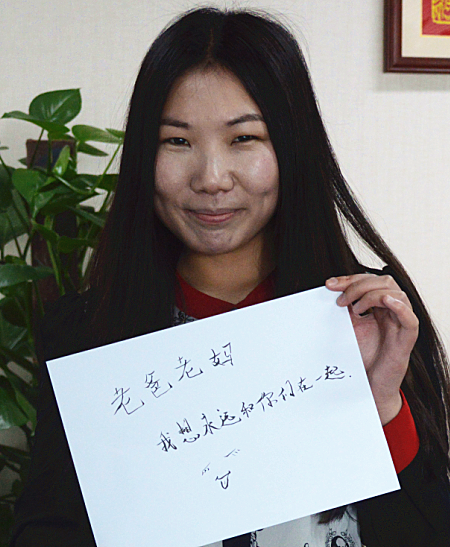 老爸老妈
我想永远和你们在一起.